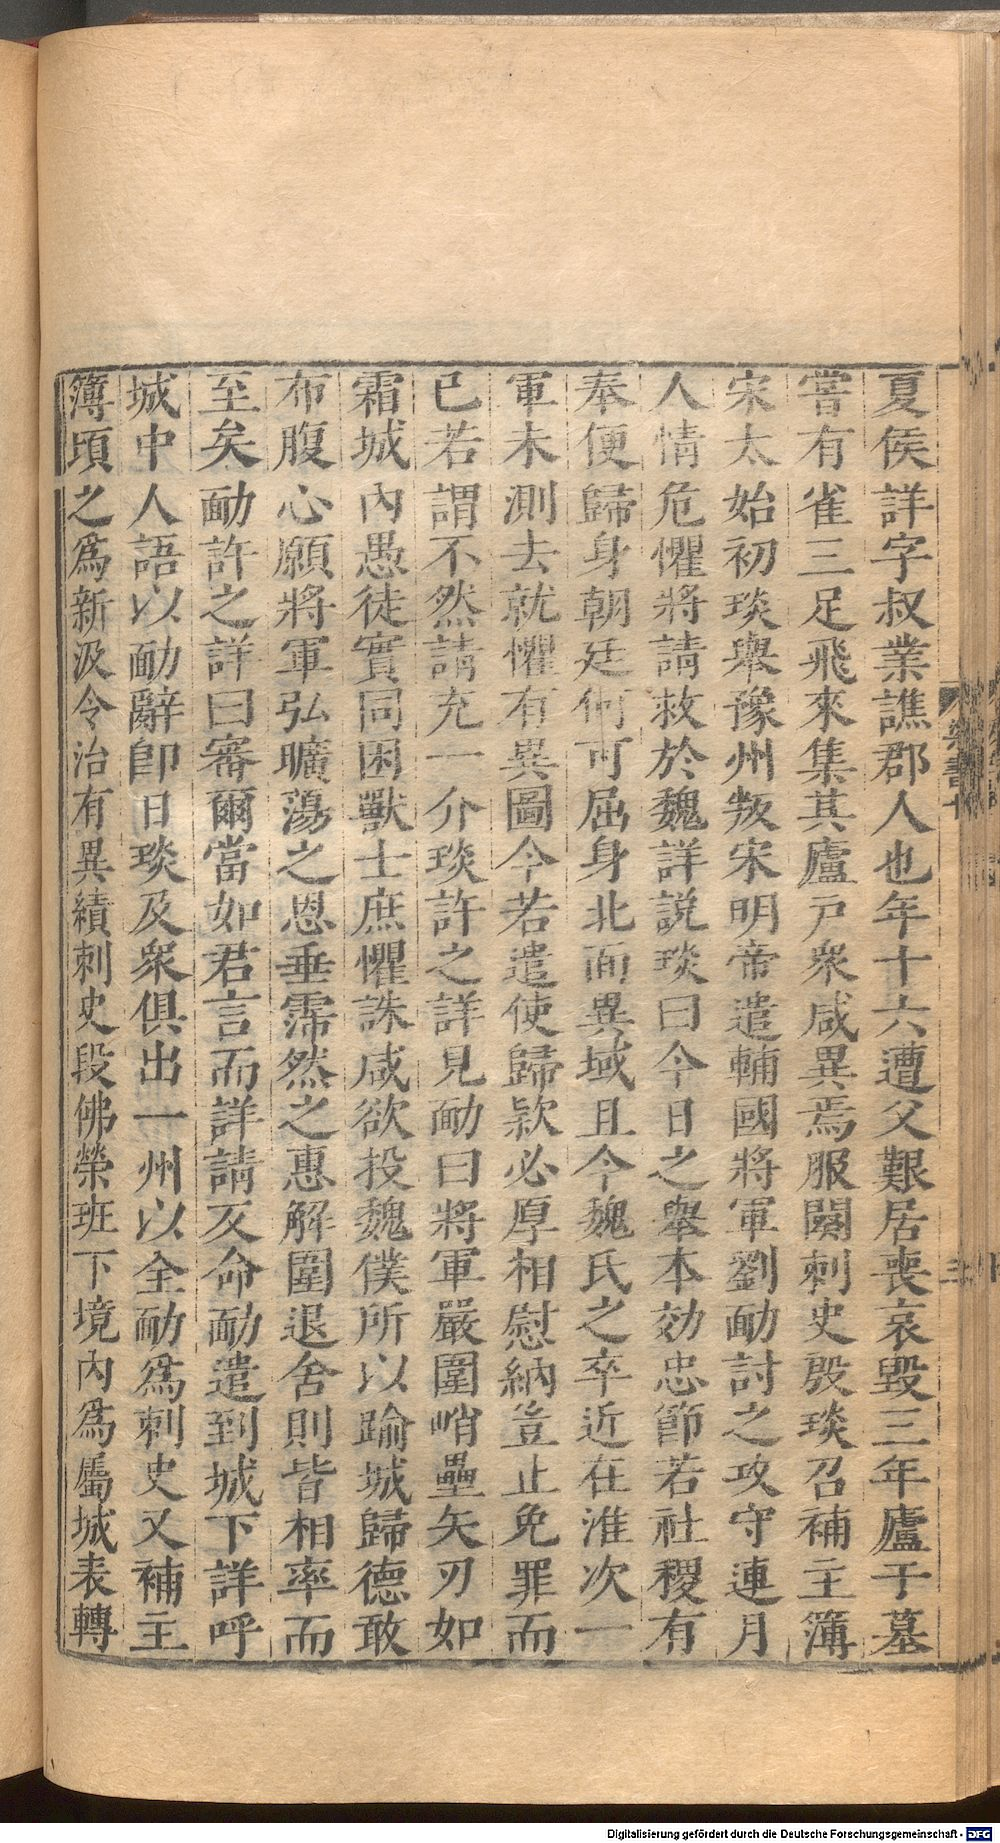 夏侯詳字叔業譙郡人也年十六遭父艱居喪哀毀三年廬于墓
嘗有雀三足飛來集其廬戸衆咸異焉服闋刺史殷琰召補主簿
宋太始初琰舉豫州叛宋明帝遣輔國將軍劉勔討之攻守連月
人情危懼將請救於魏詳説琰曰今日之舉本効忠節若社稷有
奉便歸身朝廷何可屈身北面異域且今魏氏之卒近在淮次一
軍未測去就懼有異圖今若遣使歸款必厚相慰納豈止免罪而
已若謂不然請充一介琰許之詳見勔曰將軍嚴圍峭壘矢刃如
霜城內愚徒實同困獸士庶懼誅咸欲投魏僕所以踰城歸德敢
布腹心願將軍弘曠蕩之恩垂霈然之惠解圍退舍則皆相率而
至矣勔許之詳曰審爾當如君言而詳請反命勔遣到城下詳呼
城中人語以勔辭卽日琰及衆俱出一州以全勔爲刺史又補主
簿頃之爲新汲令治有異績刺史段佛榮班下境內爲屬城表轉
梁書十
Digitalisierung gefördert durch die Deutsche Forschungsgemeinschaft - DFG